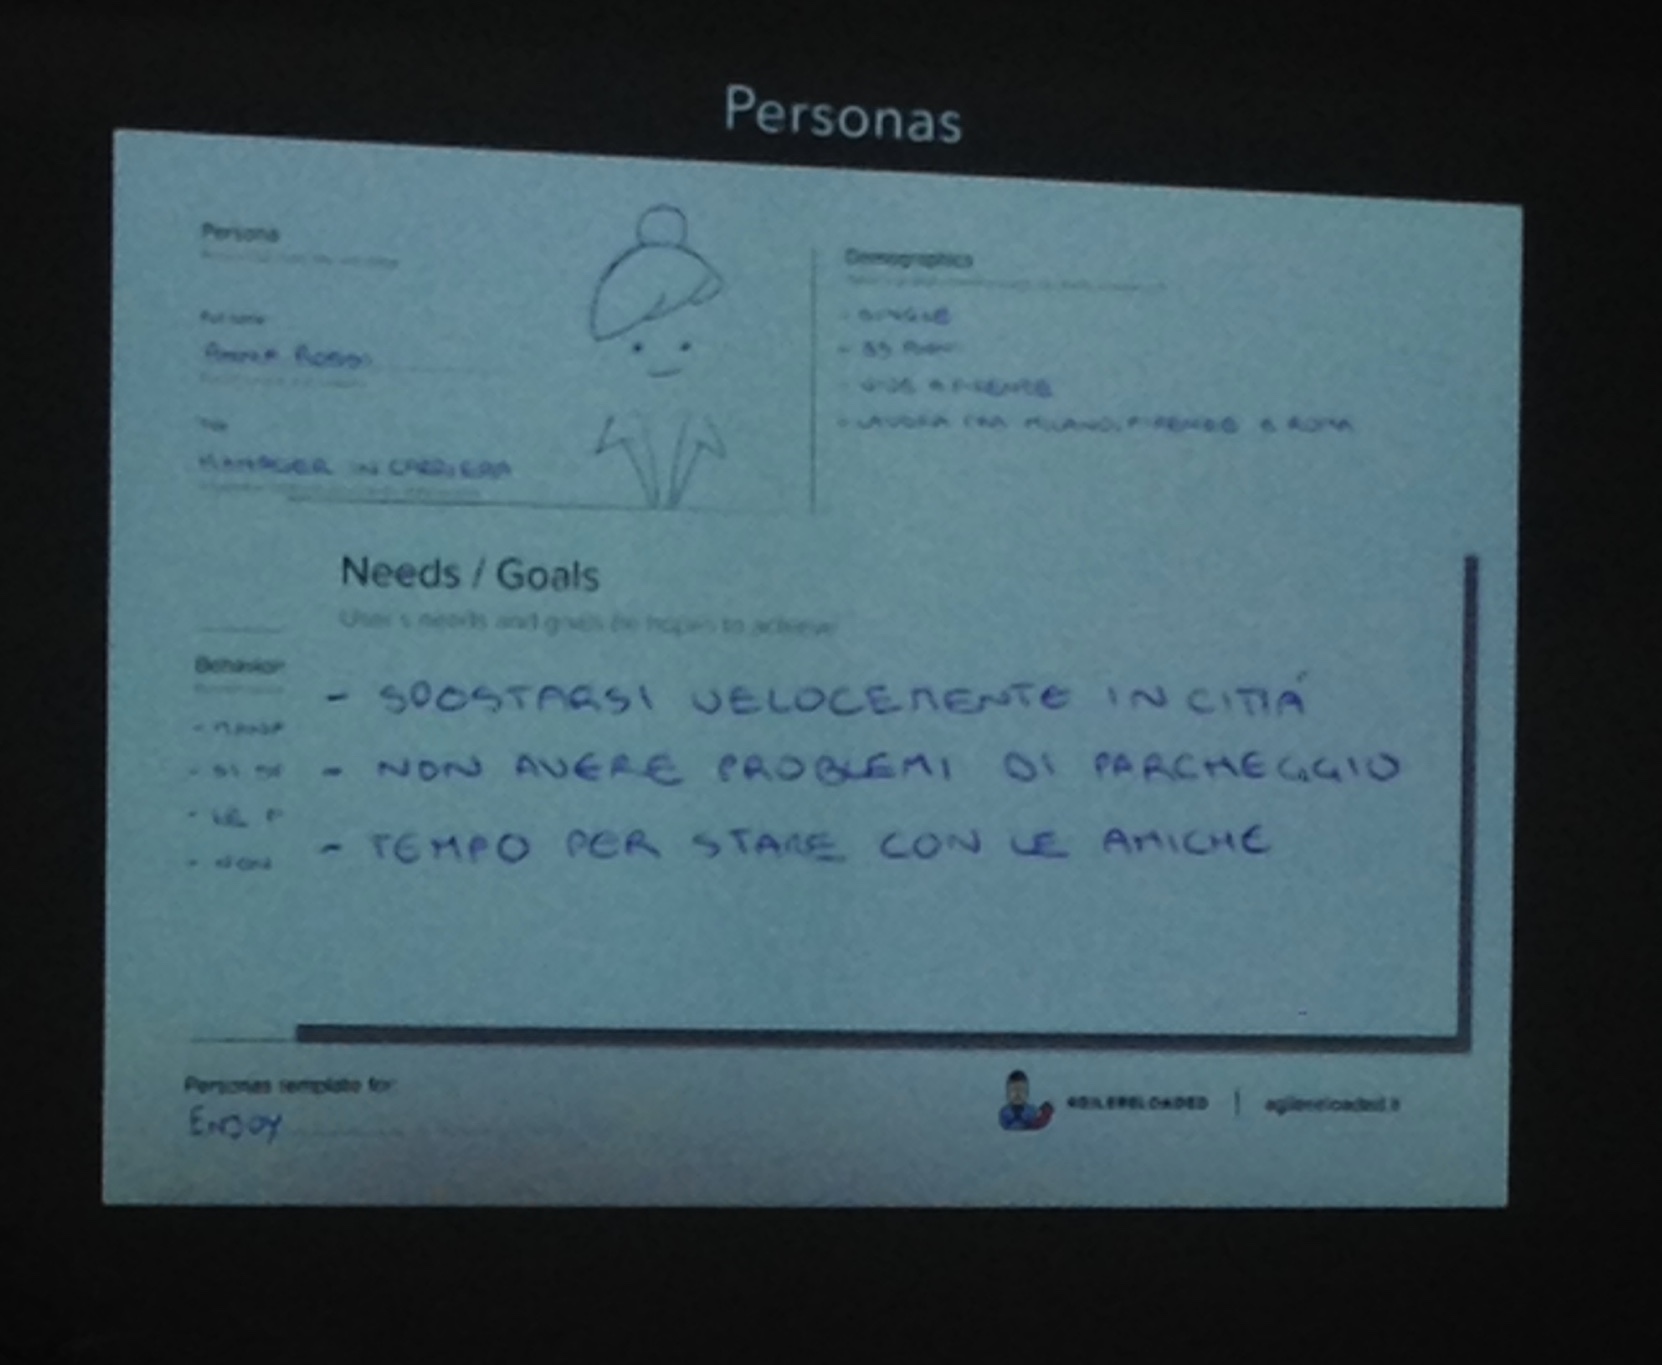 Personas
Persona
Full name
ANNA ROSSI
Title
MANAGER IN CARRIERA
Demographics
- SINGLE
- 35 ANNI
- VIVE A FIRENZE
- LAVORA FRA MILANO, FIRENZE E ROMA
Needs / Goals
User's needs and goals he hopes to achieve
- SPOSTARSI VELOCEMENTE IN CITTÁ
- NON AVERE PROBLEMI DI PARCHEGGIO
- TEMPO PER STARE CON LE AMICHE
Behavior
- NON
Personas template for:
ENJOY
AGILERELOADED | agilereloaded.it